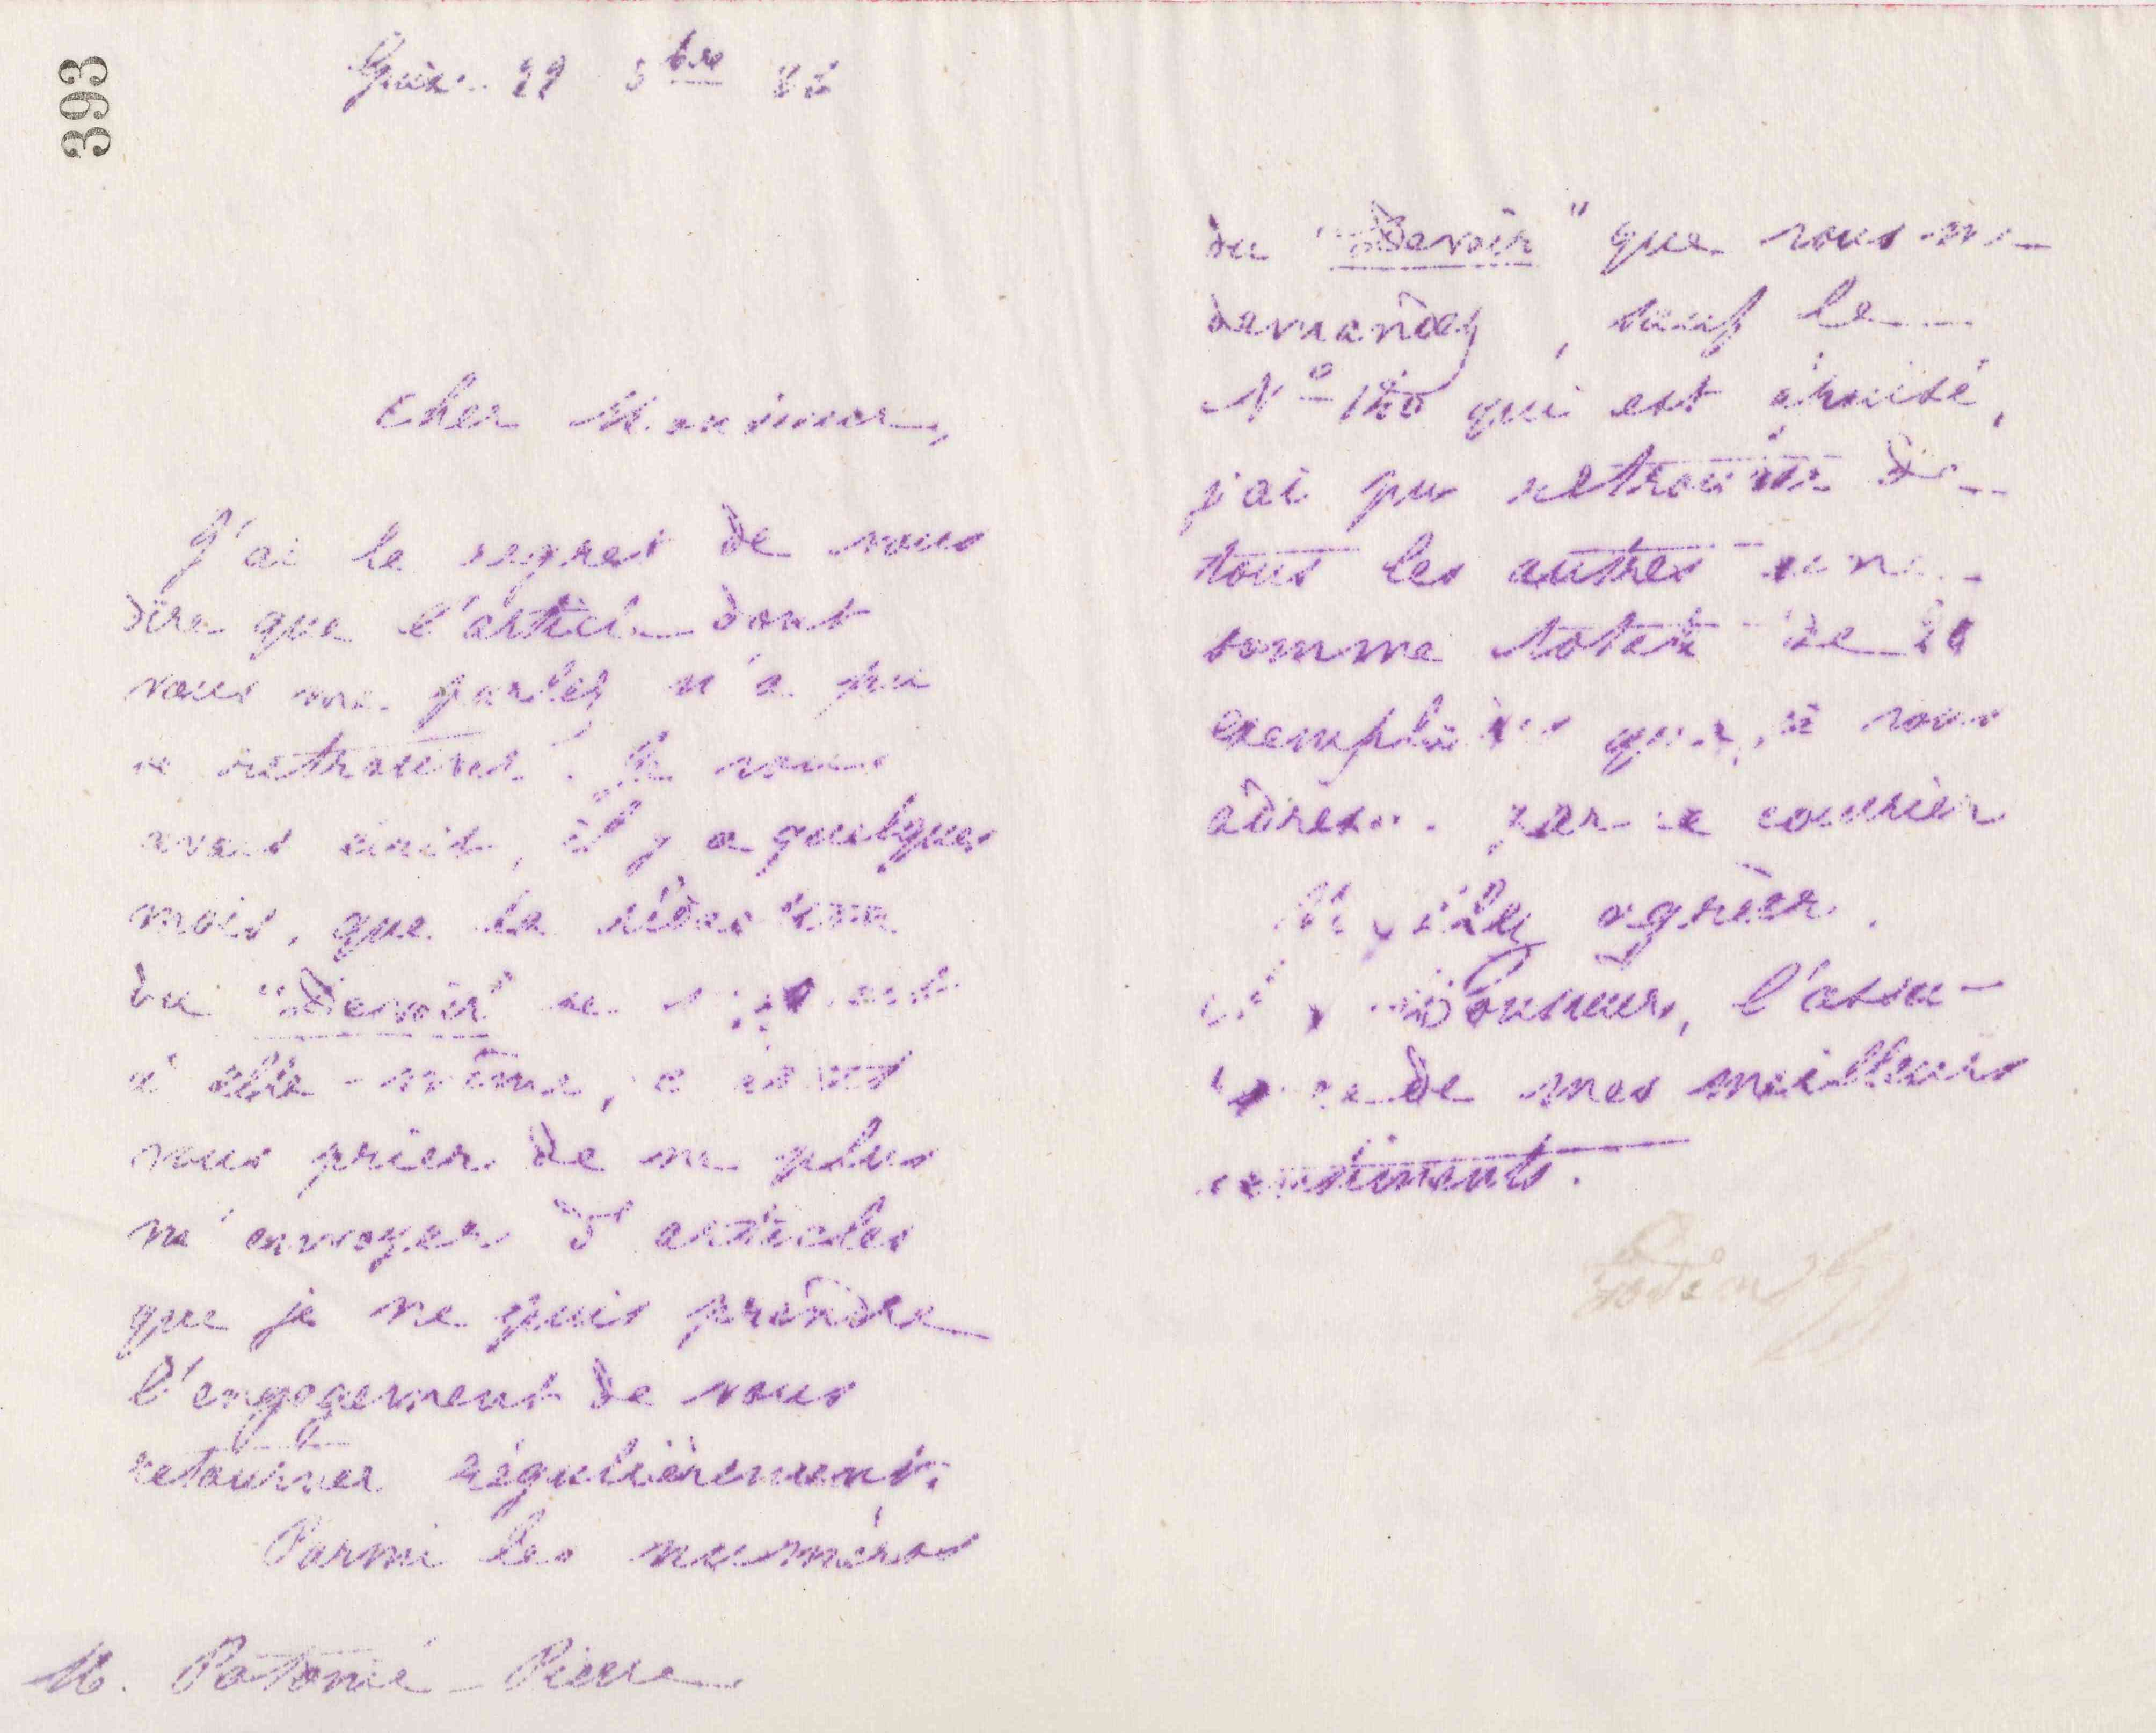 393
Guise 29 8bre 86
Cher Monsieur,
J'ai le regret de vous
dire que l'article dont
vous me parlez n'a pu
se retrouver. Je vous
avais écrit, il y a quelques
mois, que la rédaction
du "Devoir" se
à elle-même,
vous prier de ne plus
m'envoyer d'articles
que je ne puis prendre
l'engagement de vous
retourner régulièrement.
Parmi les numéros
M. Potonié-Pierre
du "Devoir" que vous me
demandez, sauf le
No qui est épuisé,
j'ai pu retrouver de
tous les autres une
somme totale de
exemplaires que je vous
adresse par ce courrier
Veuillez agréer,
Monsieur, l'assu-
rance de mes meilleurs
sentiments.
Godin